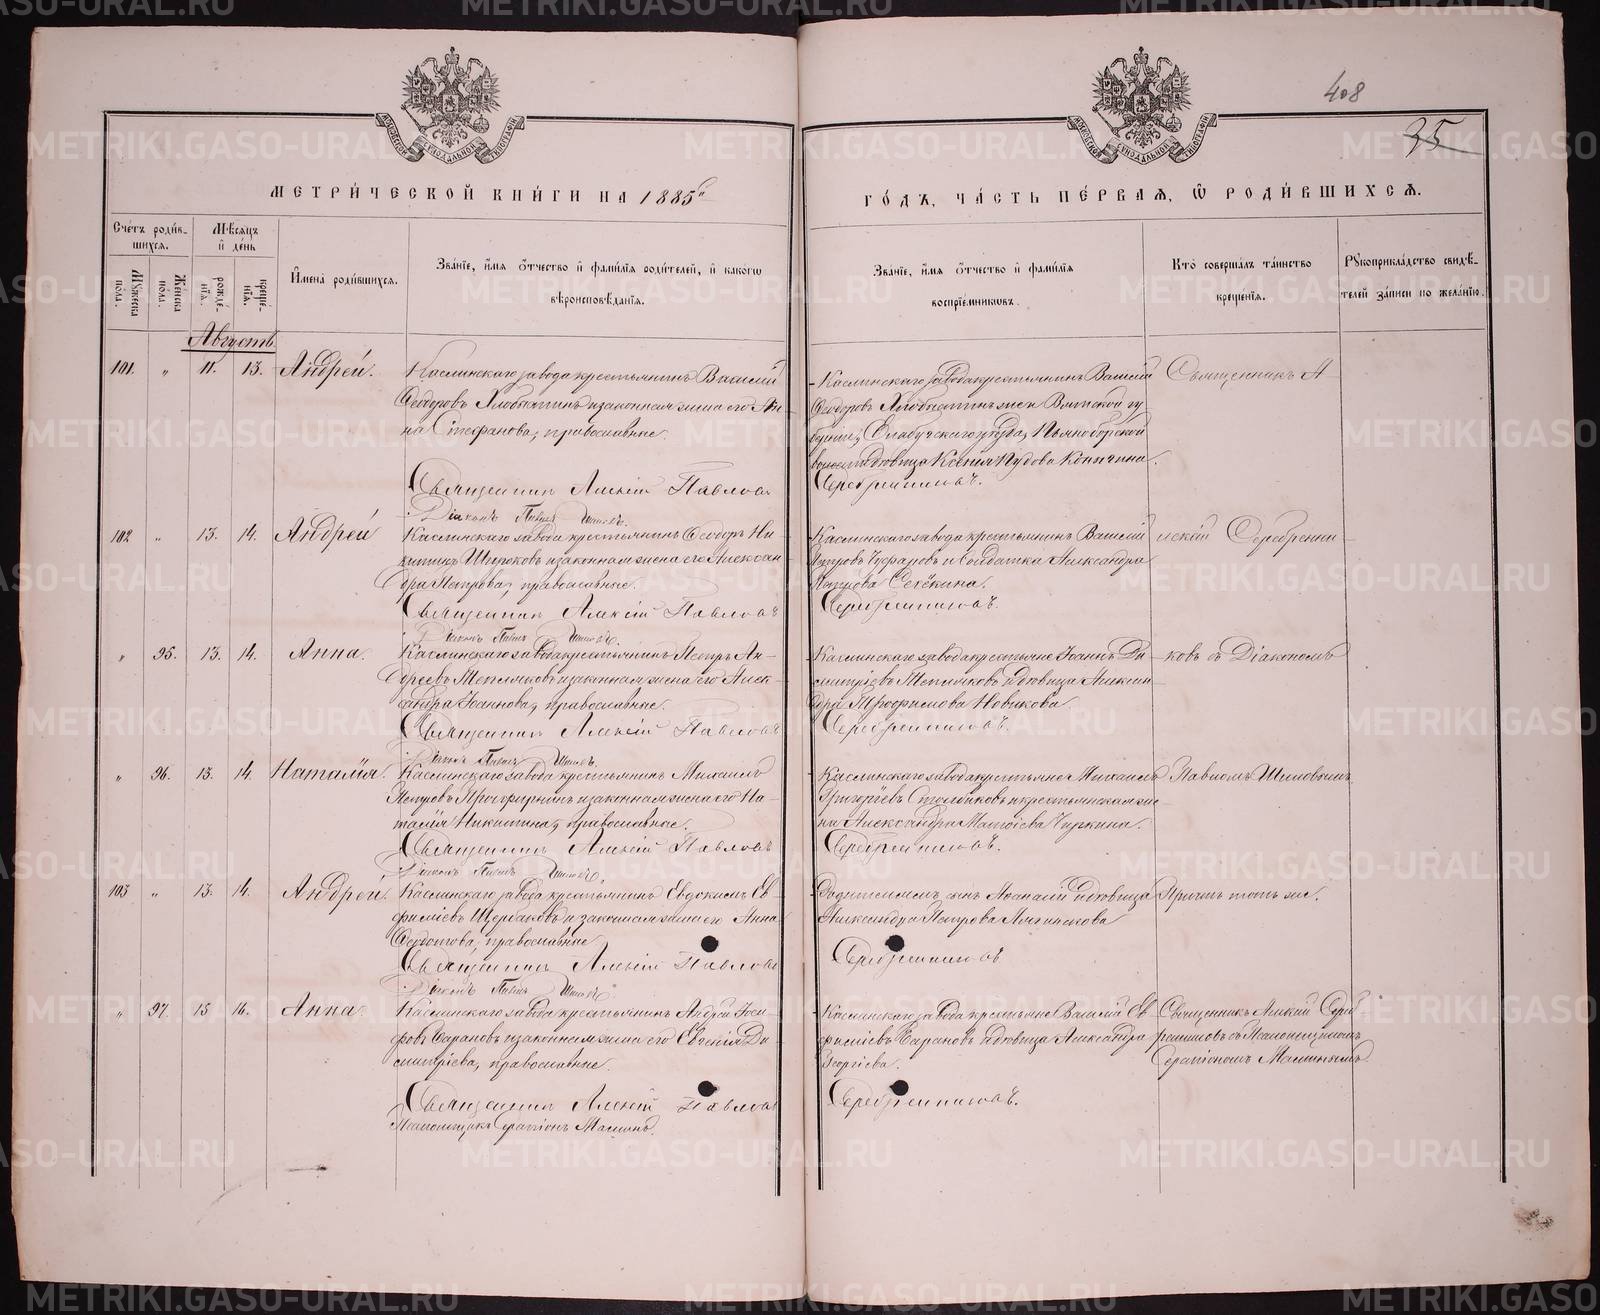 408
35
МЕТРИ́ЧЕСКОЙ КНИ́ГИ НА 1885й
ГО́ДЪ, ЧА́СТЬ ПЕ́РВАѦ, Ѡ РОДИ́ВШИХСѦ.
Сче́тъ роди́в-
шихсѧ.
Мѣ́сѧцъ
и де́нь
Мꙋ́жеска пола.
Же́нска по́ла.
рожде́-нїѧ.
креще́-нїѧ.
И҆мена̀ роди́вшихсѧ.
Зва́нїе, и҆́мѧ ѻ҆́тчество и҆ фами́лїѧ роди́телей, и҆ какогѡ
вѣроисповѣ́данїѧ.
Зва́нїе, и҆́мѧ ѻ҆́тчество и҆ фами́лїѧ
воспрїе́мникѡвъ.
Кто̀ соверша́лъ та́инство
креще́нїѧ.
Рꙋкоприкла́дство свидѣ́-
телей за́писи по жела́нїю.
Августъ
101. " 11. 13. Андрей.
Каслинскаго завода крестьянинъ Василій
Ѳеодоровъ Хлобыстинъ и законная жена его Ан-
на Стефанова, православные.
Священникъ Алексій Павловъ
Діаконъ Павелъ
Каслинскаго завода крестьянинъ Василій
Ѳеодоровъ Хлобыстинъ жен Вятской гу
берніи, Елабужскаго уѣзда, Пьяноборской
волости вдовица Ксенія
Серебренниковъ.
Священникъ А
102 " 13. 14. Андрей
Каслинскаго завода крестьянинъ Ѳеодоръ Ни-
китинъ Широковъ и законная жена его Алексан
дра Петрова, православные.
Священникъ Алексій Павловъ
Діаконъ Павелъ
Каслинскаго завода крестьянинъ Василій
Петровъ и Солдатка Александра
Петрова Секёкина.
Серебренниковъ.
лексій Серебренни-
" 95. 13. 14. Анна.
Каслинскаго завода крестьянинъ Петръ Ан-
дреевъ Мепляковъ и законная жена его Алек-
сандра Іоаннова, православные.
Священникъ Алексій Павловъ
Діаконъ Павелъ
Каслинскаго завода крестьяне Іоаннъ Ди-
митріевъ вдовица Алексан-
дра Трофимова Новикова.
Серебренниковъ.
ковъ съ Діакономъ
" 96. 13. 14. Наталія.
Каслинскаго завода крестьянинъ Михаилъ
Петровъ и законная жена его На-
талія Никитина, православные.
Священникъ Алексій Павловъ
Діаконъ Павелъ
Каслинскаго завода крестьяне Михаилъ
Григоріевъ Столбиковъ и крестьянская же
на Александра Чуркина.
Серебренниковъ.
Павломъ Шишовымъ
103 " 13. 14. Андрей.
Каслинскаго завода крестьянинъ Евдокимъ Ев
фиміевъ Щербаковъ и законная жена его Анна
Ѳедотова, православные
Священникъ Алексій Павловъ
Діаконъ Павелъ
Аѳанасій вдовица
Александра Петрова
Серебренниковъ
Причтъ тотъ же.
" 97. 15 16. Анна.
Каслинскаго завода крестьянинъ Андрей Іоси-
фовъ Барановъ и законная жена его Евгенія Ди-
митріева, православные.
Священникъ Алексій Павловъ
Псаломщикъ Серапіонъ
Каслинскаго завода крестьяне Василій Ев
фиміевъ Барановъ вдовица Александра
Георгіева.
Серебренниковъ.
Священникъ Алексій Сереб
ренниковъ съ Псаломщикомъ
Серапіономъ